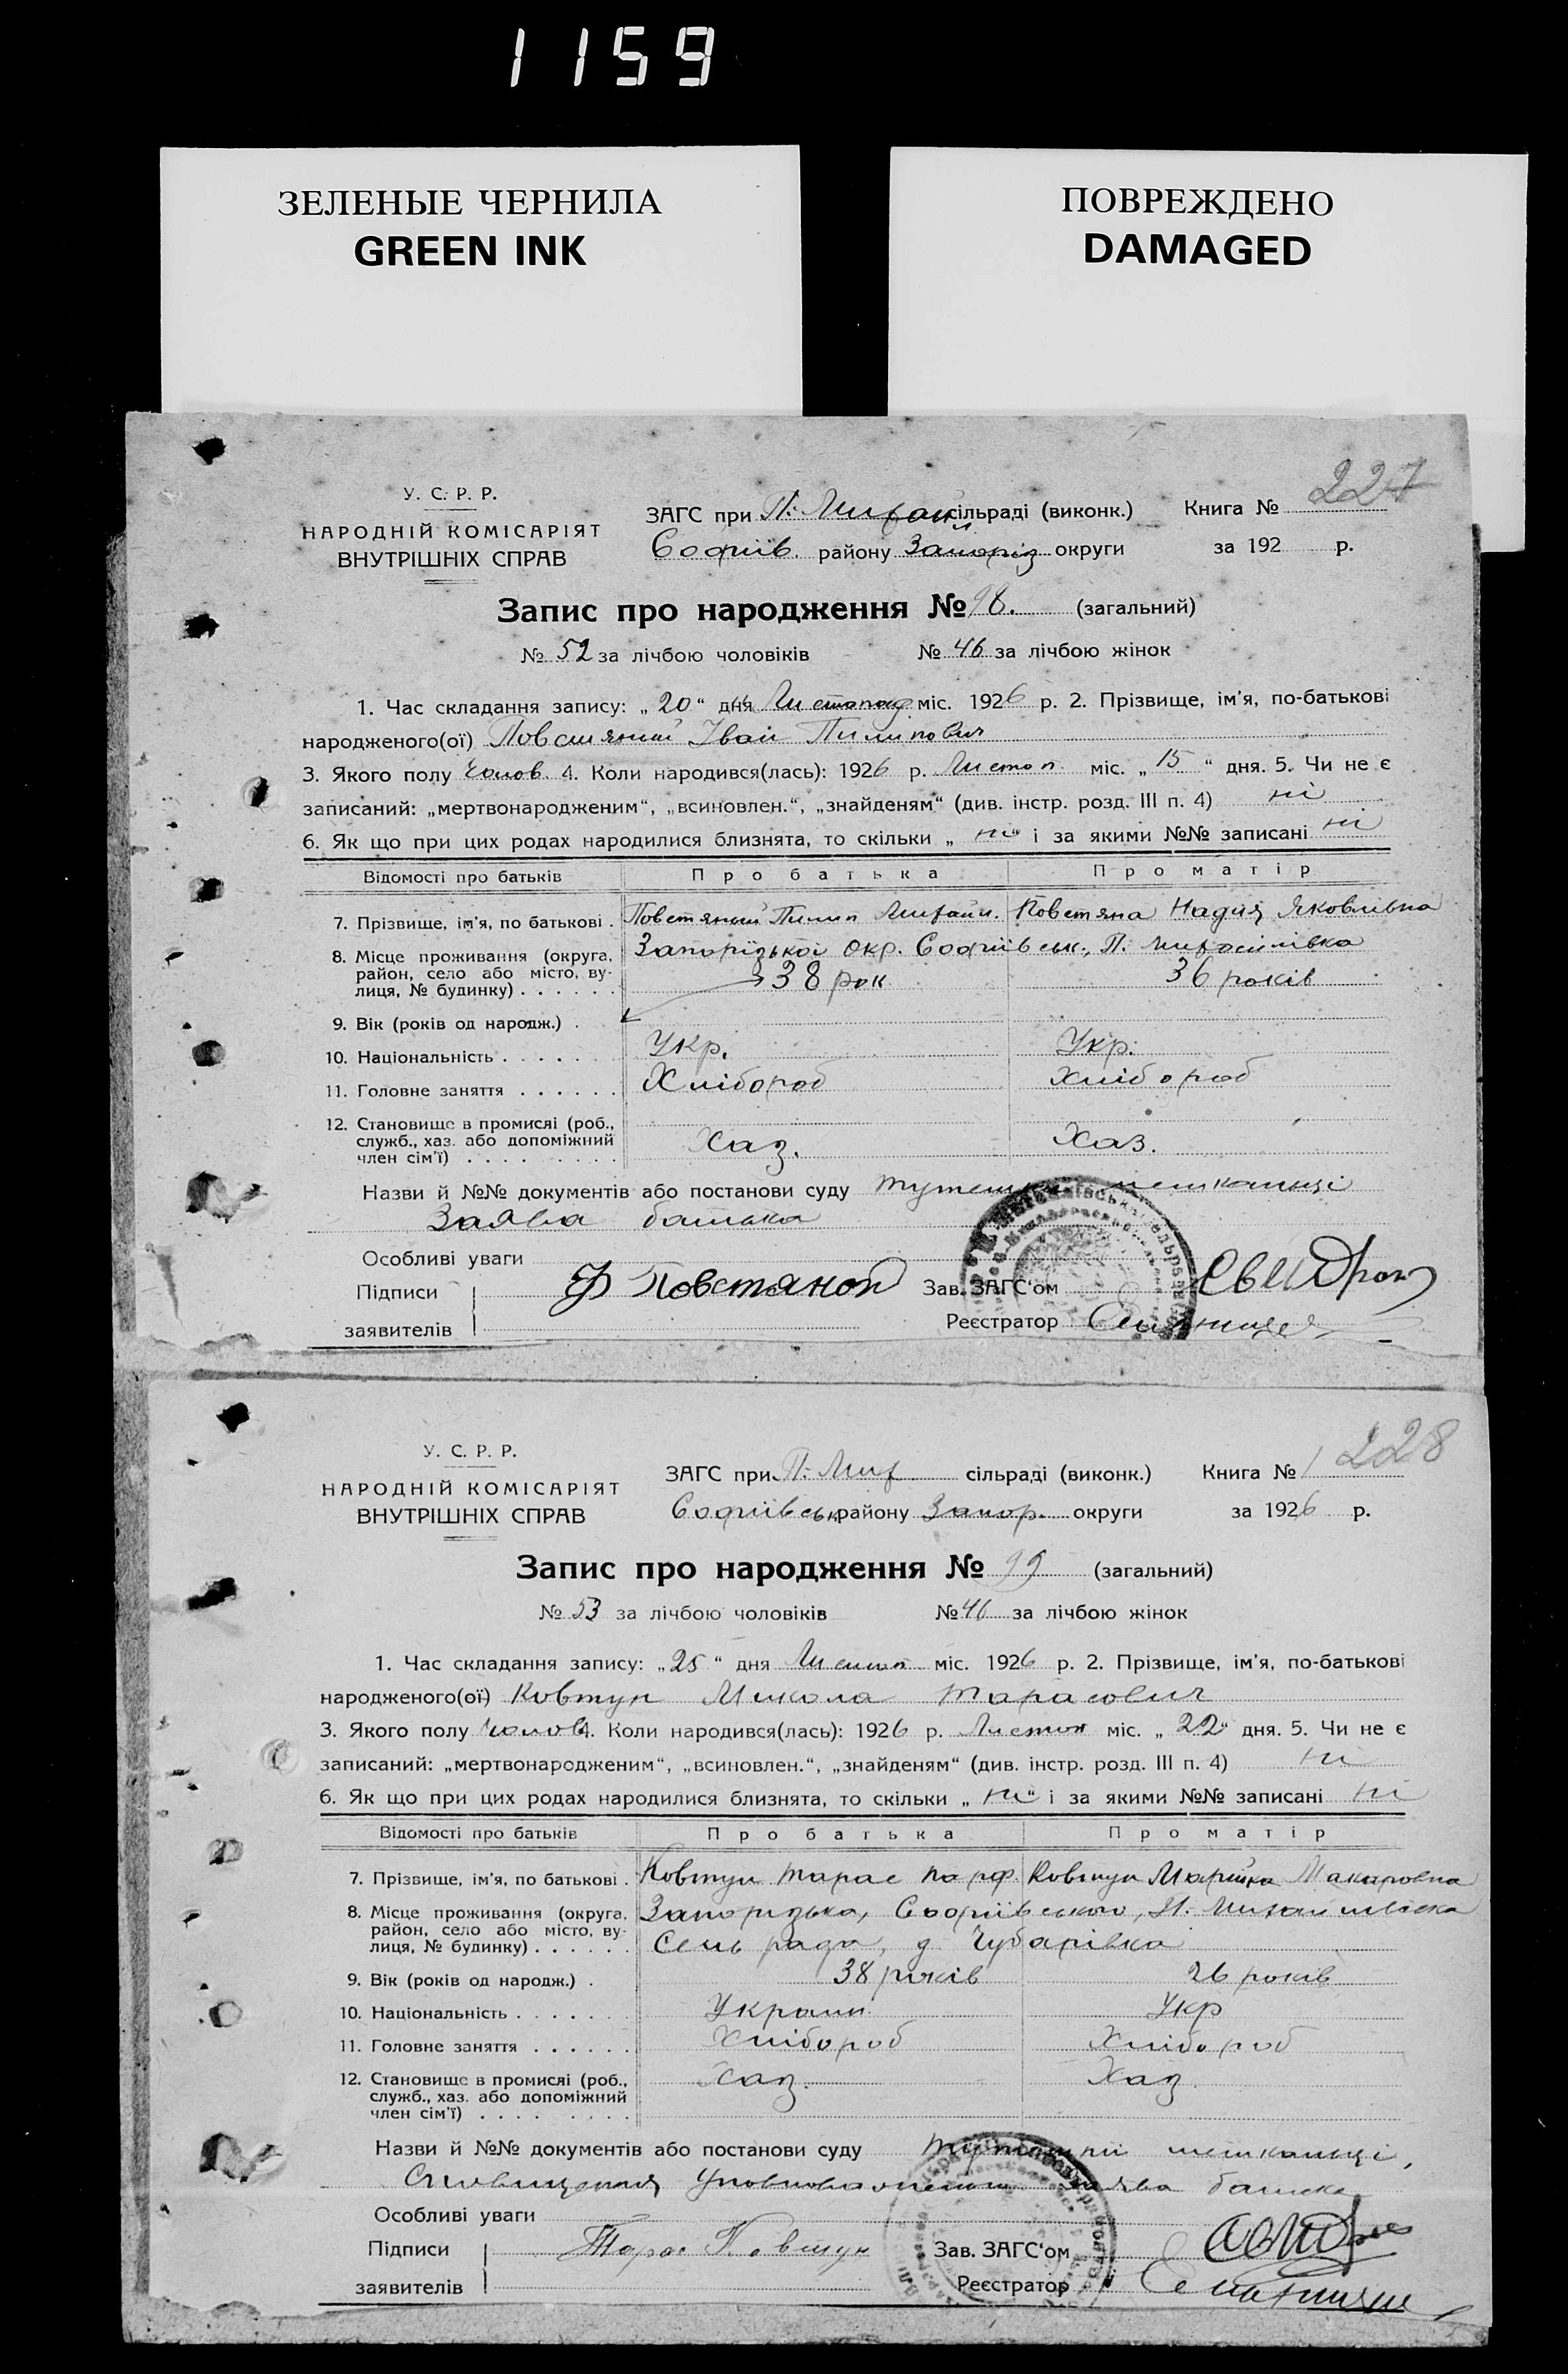 1159
ЗЕЛЕНЫЕ ЧЕРНИЛА
GREEN INK
ПОВРЕЖДЕНО
DAMAGED
227
У. С. Р. Р.
НАРОДНІЙ КОМІСАРІЯТ
ВНУТРІШНІХ СПРАВ
ЗАГС при П. Михайл сільраді (виконк.) Книга №
Софиїв. району Запоріз округи за 192 р.
Запис про народження № 98. (загальний)
№ 52 за лічбою чоловіків № 46 за лічбою жінок
1. Час складання запису: „20“ дня Листопад міс. 1926 р. 2. Прізвище, ім'я, по-батькові
народженого(ої) Повстяний Іван Пилипович
3. Якого полу Чолов. 4. Коли народився(лась): 1926 р. Листоп міс. „15“ дня. 5. Чи не є
записаний: „мертвонародженим“, „всиновлен.“, „знайденям“ (див. інстр. розд. III п. 4) ні
6. Як що при цих родах народилися близнята, то скільки „ні“ і за якими №№ записані ні
Відомості про батьків Про батька Про матір
7. Прізвище, ім'я, по батькові . Повстяний Пилип Михайл. Повстяна Надія Яковлівна
8. Місце проживання (округа, район, село або місто, вулиця, № будинку) . . . . . . Запорізької окр. Софиївськ., П. Михайлівка
9. Вік (років од народж.) . 38 рок 36 років
10. Національність . . . . . . Укр. Укр.
11. Головне заняття . . . . . . Хлібороб Хлібороб
12. Становище в промислі (роб., служб., хаз. або допоміжний член сім'ї) . . . . . . . . Хаз. Хаз.
Назви й №№ документів або постанови суду тутешні мешканці
Заява батька
Особливі уваги
Підписи Ф Повстяной Зав. ЗАГС'ом
заявителів Реєстратор
228
У. С. Р. Р.
НАРОДНІЙ КОМІСАРІЯТ
ВНУТРІШНІХ СПРАВ
ЗАГС при П. Мих сільраді (виконк.) Книга № 1
Софиївськ району Запор. округи за 1926 р.
Запис про народження № 99 (загальний)
№ 53 за лічбою чоловіків № 46 за лічбою жінок
1. Час складання запису: „25“ дня Листоп міс. 1926 р. 2. Прізвище, ім'я, по-батькові
народженого(ої) Ковтун Микола Тарасович
3. Якого полу Чолов 4. Коли народився(лась): 1926 р. Листоп міс. „22“ дня. 5. Чи не є
записаний: „мертвонародженим“, „всиновлен.“, „знайденям“ (див. інстр. розд. III п. 4) ні
6. Як що при цих родах народилися близнята, то скільки „ні“ і за якими №№ записані ні
Відомості про батьків Про батька Про матір
7. Прізвище, ім'я, по батькові . Ковтун Тарас Парф. Ковтун Марійка Макаровна
8. Місце проживання (округа, район, село або місто, вулиця, № будинку) . . . . . . Запорізька, Софиївського, П. Михайлівська
Сель рада, д. Чубарівка
9. Вік (років од народж.) . 38 років 26 років
10. Національність . . . . . . . Україн Укр
11. Головне заняття . . . . . . Хлібороб Хлібороб
12. Становище в промислі (роб., служб., хаз. або допоміжний член сім'ї) . . . . . . . . Хаз. Хаз
Назви й №№ документів або постанови суду тутешні мешканці,
заява батька
Особливі уваги
Підписи Тарас Ковтун Зав. ЗАГС'ом
заявителів Реєстратор